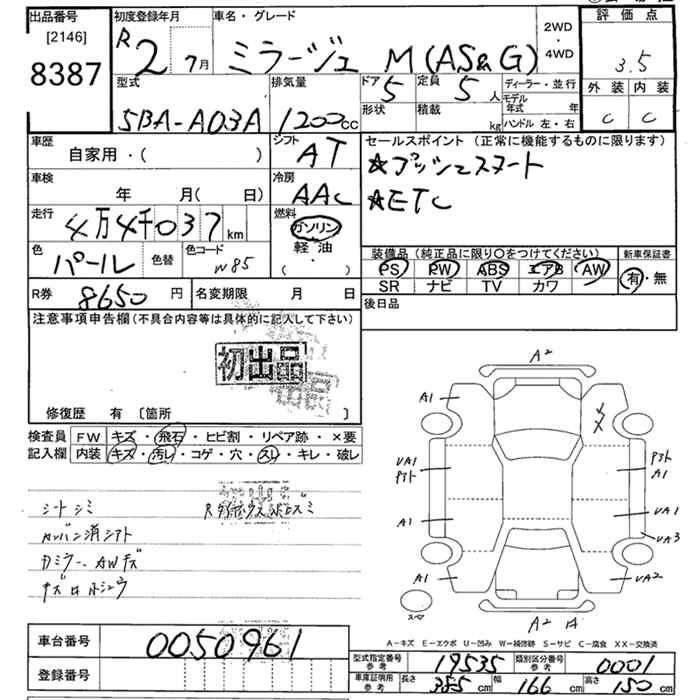 出品番号
[2146]
8387
初度登録年月
R2 7月
車名・グレード
ミラージュ M(AS&G)
2WD
・
4WD
評価点
3.5
外装 内装
C C
型式
5BA-A03A
排気量
1200cc
ドア 5
形状
定員 5人
積載 kg
ディーラー・並行
モデル年式 年
ハンドル 左・右
車歴
自家用・( )
シフト
AT
セールスポイント (正常に機能するものに限ります)
☆プッシュスタート
☆ETC
車検
年 月( 日)
冷房
AAC
走行
4万4千037km
燃料
ガソリン
・
軽油
( )
色
パール
色替
色コード
W85
装備品(純正品に限り○をつけてください)
PS PW ABS エアB AW
SR ナビ TV カワ
新車保証書
有・無
R券 8650円
名変期限 月 日
後日品
注意事項申告欄(不具合内容等は具体的に記入して下さい)
初出品
修復歴 有 〔箇所 〕
検査員記入欄
FW キズ・飛石・ヒビ割・リペア跡・×要
内装 キズ・汚レ・コゲ・穴・スレ・キレ・破レ
シートシミ
カンバン消シアト
Dミラー、AWキズ
キズ口ホシュウ
A2
A1
A1
A1
A1
UA1
UA1
UA3
UA2
A2
スペア
A-キズ E-エクボ U-凹み W-補修跡 S-サビ C-腐食 XX-交換済
車台番号
0050961
登録番号
型式指定番号 参考
19535
類別区分番号 参考
0001
車庫証明用 参考
長さ 355cm
幅 166cm
高さ 150cm